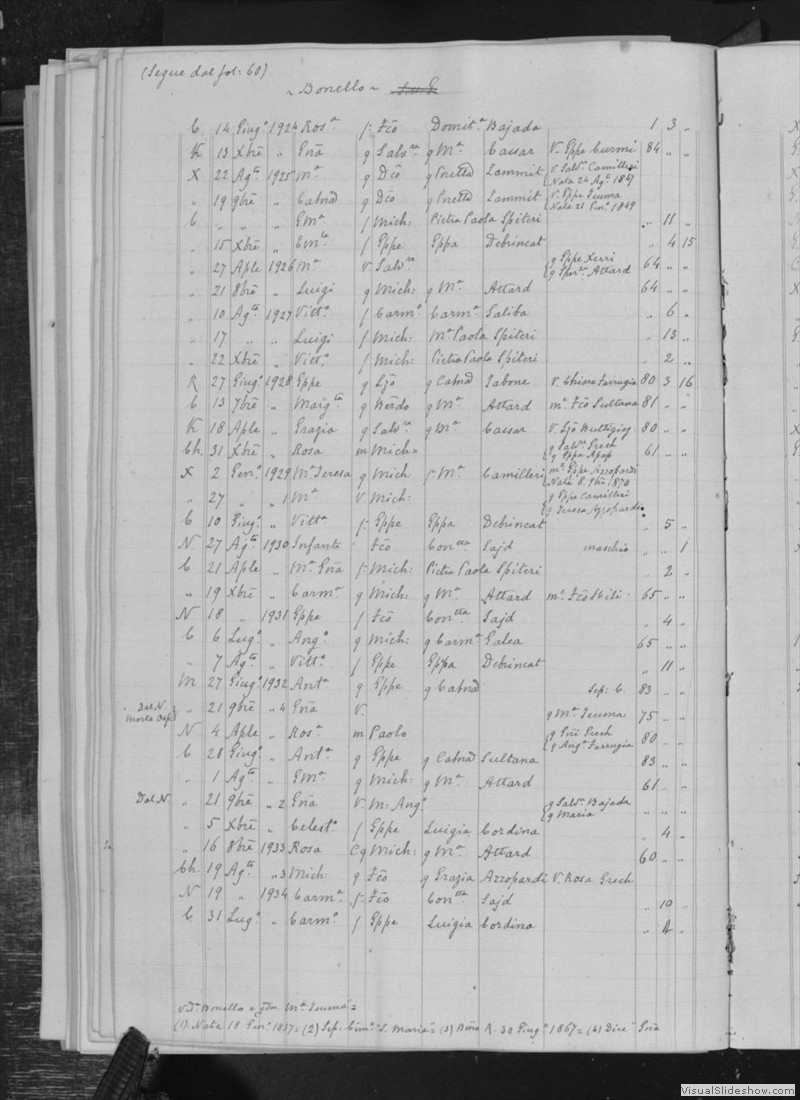 (Segue dal fol: 60)
~ Bonello ~
C. 14 Giugº 1924 Rosª f. Fcō Domitª Bajada 1 3 "
K 13 Xbrē " Gnā g Salvre g Mª Cassar V. Eppe Curmi 84 " "
X 22 Agto 1925 Mª g Dcō g Zammit V. Salvre Camilleri
Nata 24 Agto 1867
" 19 9brē " g Dcō g Zammit V. Eppe Teuma
Nata 21 Genº 1869
C " " " Emª f Mich: Pietra Paola Spiteri " 11 "
" 15 Xbrē " f Eppe Eppa Debrincat " 4 15
" 27 Aple 1926 Mª V Salvre g Eppe Xerri
g Attard 64 " "
" 21 8brē " Luigi g Mich: g Mª Attard 64 " "
" 10 Agto 1927 Vittª f Carmº Carmª Saliba " 6 "
" 17 " " Luigi f Mich: Mª Paola Spiteri " 13 "
" 22 Xbrē " Vittª f Mich: Pietra Paola Spiteri " 2 "
R 27 Giugº 1928 Eppe g g V. Chiara Farrugia 80 3 16
C 13 7brē " Margta g Berdo g Mª Attard mº Fcō Sultana 81 " "
K 18 Aple " Grazia g Salvre g Mª Cassar V. Buttigieg 80 " "
Ch. 31 Xbrē " Rosa m Mich= g Salvre Grech
g Eppa Apap 61 " "
X 2 Genº 1929 Mª Teresa g Mich Mª Camilleri mº Eppe Azzopardi
Nata 8. 9brē 1870
" 27 " " 1 Mª V. Mich: g Eppe Camilleri
g Teresa Azzopardi
C 10 Giugº " Vittª f. Eppe Eppa Debrincat " 5 "
N 27 Agto 1930 Infante " Fcō Contta Sajd maschio " " 1
C 21 Aple " Mª Gnā f. Mich: Pietra Paola Spiteri " 2 "
" 19 Xbrē " Carmª g Mich: g Mª Attard mº Fcō 65 " "
N 18 " 1931 Eppe f Fcō Contta Sajd " 4 "
C 6 Lugº " Angº g Mich: g Carmª Galea 65 " "
" 7 Agto " Vittª f Eppe Eppa Debrincat " 11 "
M 27 Giugº 1932 Antª g Eppe g Catnā Sep: C. 83 " "
Dal N.
morta Osp. " 21 9brē " 4 Gnā V. g Mª Teuma 75 " "
N 4 Aple " Rosª m Paolo g Gnī Grech
g Angª Farrugia 80 " "
C 28 Giugº " Antª g Eppe g Catnā Sultana 83 " "
" 1 Agto " Emª g Mich: g Mª Attard 61 " "
Dal N. " 21 9brē " 2 Gnā V. M: Angº g Salvº Bajada
g Maria " " "
" 5 Xbrē " Celestª f Eppe Luigia Cordina " 4 "
" 16 8brē 1933 Rosa Cg Mich: g Mª Attard 60 " "
Ch. 19 Agto " 3 Mich: g Fcō g Grazia Azzopardi V. Rosa Grech
N 19 " 1934 Carmª f. Fcō Contta Sajd " 10 "
C 31 Lugº " Carmº f Eppe Luigia Cordina " 4 "
V. Dª Bonello e qdm Mª Teuma =
(1) Nata 18 Genº 1857 = (2) Sep: Cimº S. Maria = (3) R. 30 Giugº 1867 = (4) Dice Gnā
VisualSlideshow.com